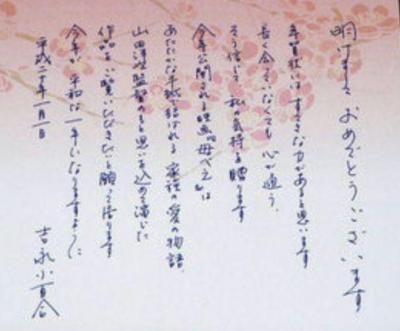 明けまして おめでとうございます
年賀状には すてきな力があると思います
長く会っていなくても 心が通う、
そう信じて 私の気持を贈ります
今年公開される映画「母べえ」は
あたたかな手紙で結ばれる 家族の愛の物語、
山田洋次監督のもと 思いを込めて演じた
作品をご覧いただきたいと願って居ります
今年が 平和な一年になりますように
平成二十年一月一日
吉永小百合